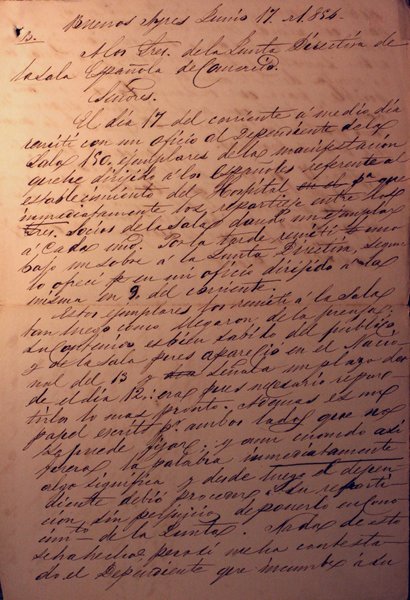 Buenos Ayres Junio 17 de 1854.
A los Sres. de la Junta Directiva de
la Sala Española de Comercio.
Señores.
El dia 17 del corriente á medio dia
remití con un oficio al Dependiente de la
Sala 150 ejemplares de la manifestacion
que he dirijido a los Españoles referente al
establecimiento del Hospital pª que
inmediatamente los repartiese entre los
Sres. Socios de la Sala dando un ejemplar
á cada uno. Por la tarde remití uno
bajo un sobre á la Junta Directiva, segun
lo ofrecí en mi oficio dirijido á la
misma en 9 del corriente.
Estos ejemplares los remití á la Sala
tan luego como llegaron de la prensa;
su contenido es bien sabido del publico
y de la Sala pues aparecio en el Nacio
nal del 13 y señala un plazo des
de el dia 12: era pues necesario repar
tirlos lo mas pronto. es un
papel escrito pr. ambos lados que no
se puede fijar: y aun cuando asi
fuera, la palabra inmediatamente
algo significa y desde luego el depen
diente debió proceder á su reparti
cion sin perjuicio de ponerlo en cono
cimto. de la Junta. Nada de esto
se ha hecho: pero si me ha contesta
do el Dependiente que incumbe á su